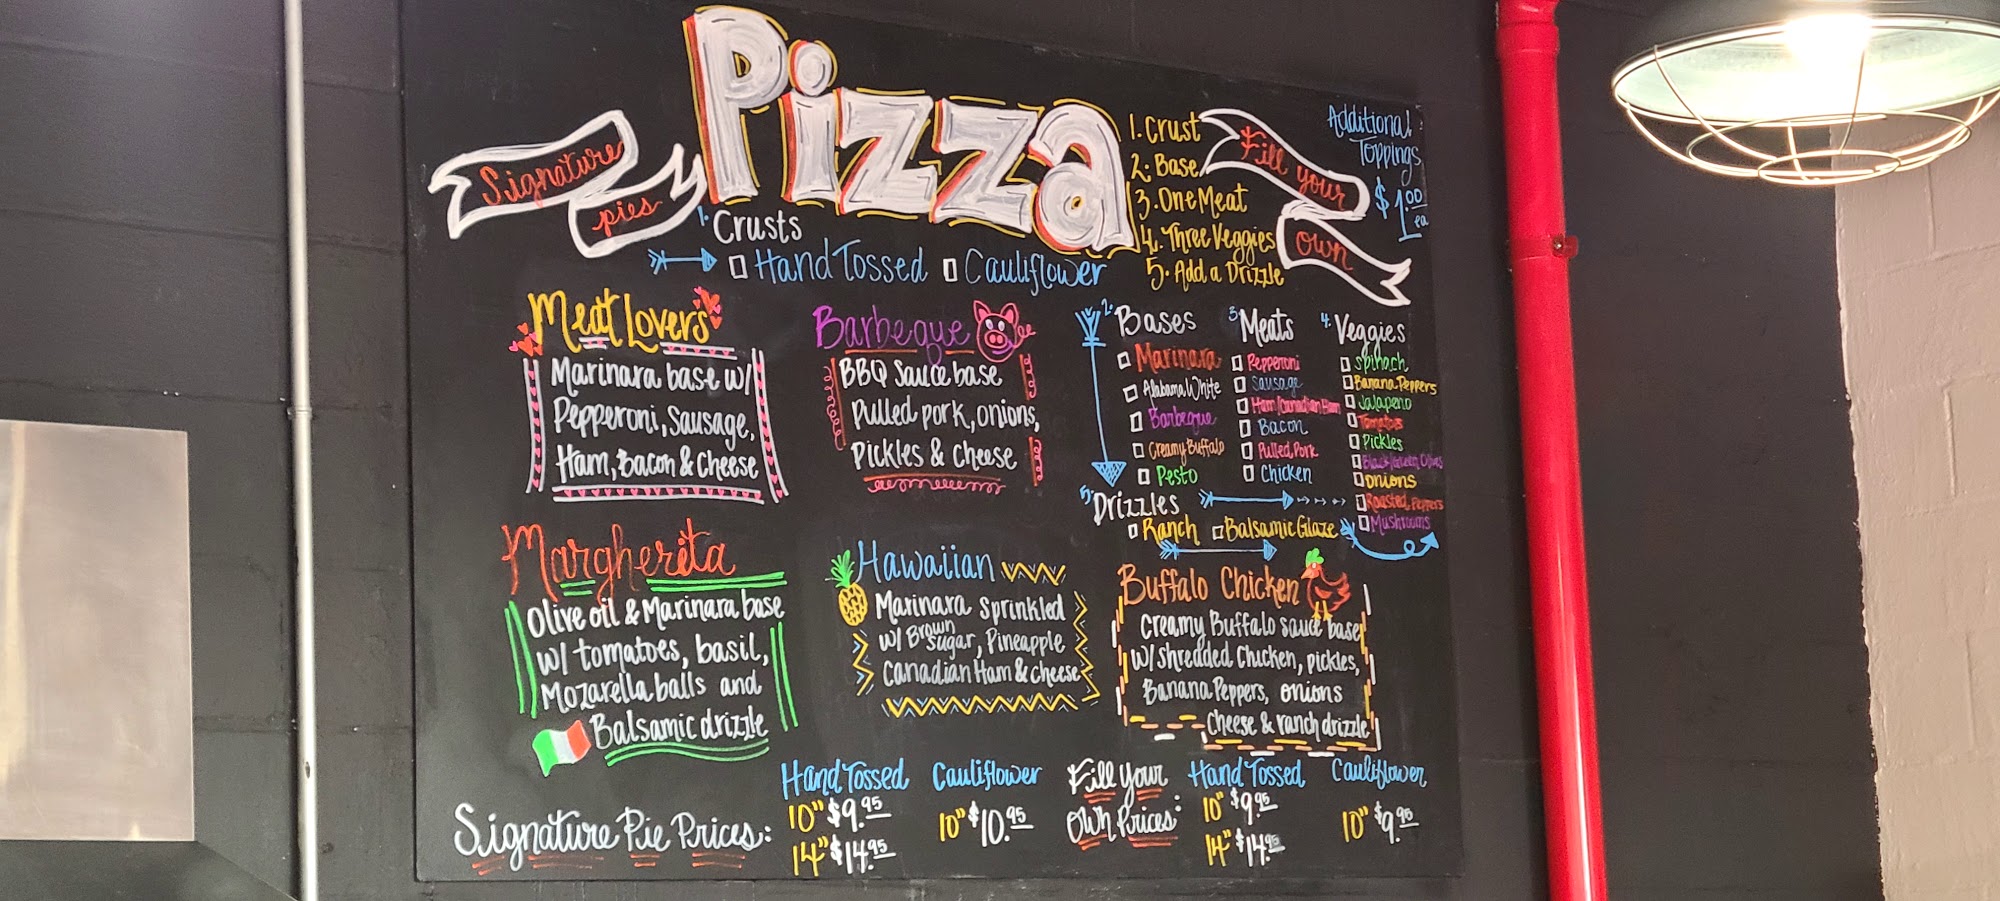 Pizza
Signature
pies
1. Crusts
Hand Tossed Cauliflower
1. Crust
2. Base
3. One Meat
4. Three Veggies
5. Add a Drizzle
Fill your
own
Additional
Toppings
$1.00
ea
Meat Lovers
Marinara base w/
Pepperoni, Sausage,
Ham, Bacon & Cheese
Barbeque
BBQ Sauce base
Pulled pork, onions,
Pickles & cheese
2. Bases
Marinara
Alabama White
Barbeque
Creamy Buffalo
Pesto
3. Meats
Pepperoni
Sausage
Ham/Canadian Ham
Bacon
Pulled Pork
Chicken
4. Veggies
Spinach
Banana Peppers
Jalapeno
Tomatoes
Pickles
Black/Green Olives
Onions
Roasted Peppers
Mushrooms
5. Drizzles
Ranch Balsamic Glaze
Margherita
Olive oil & Marinara base
w/ tomatoes, basil,
Mozarella balls and
Balsamic drizzle
Hawaiian
Marinara sprinkled
w/ Brown sugar, Pineapple
Canadian Ham & cheese
Buffalo Chicken
Creamy Buffalo sauce base
w/ shredded chicken, pickles,
Banana Peppers, onions
Cheese & ranch drizzle
Signature Pie Prices:
Hand Tossed
10" $9.95
14" $14.95
Cauliflower
10" $10.95
Fill Your
Own Prices:
Hand Tossed
10" $9.95
14" $14.95
Cauliflower
10" $9.95